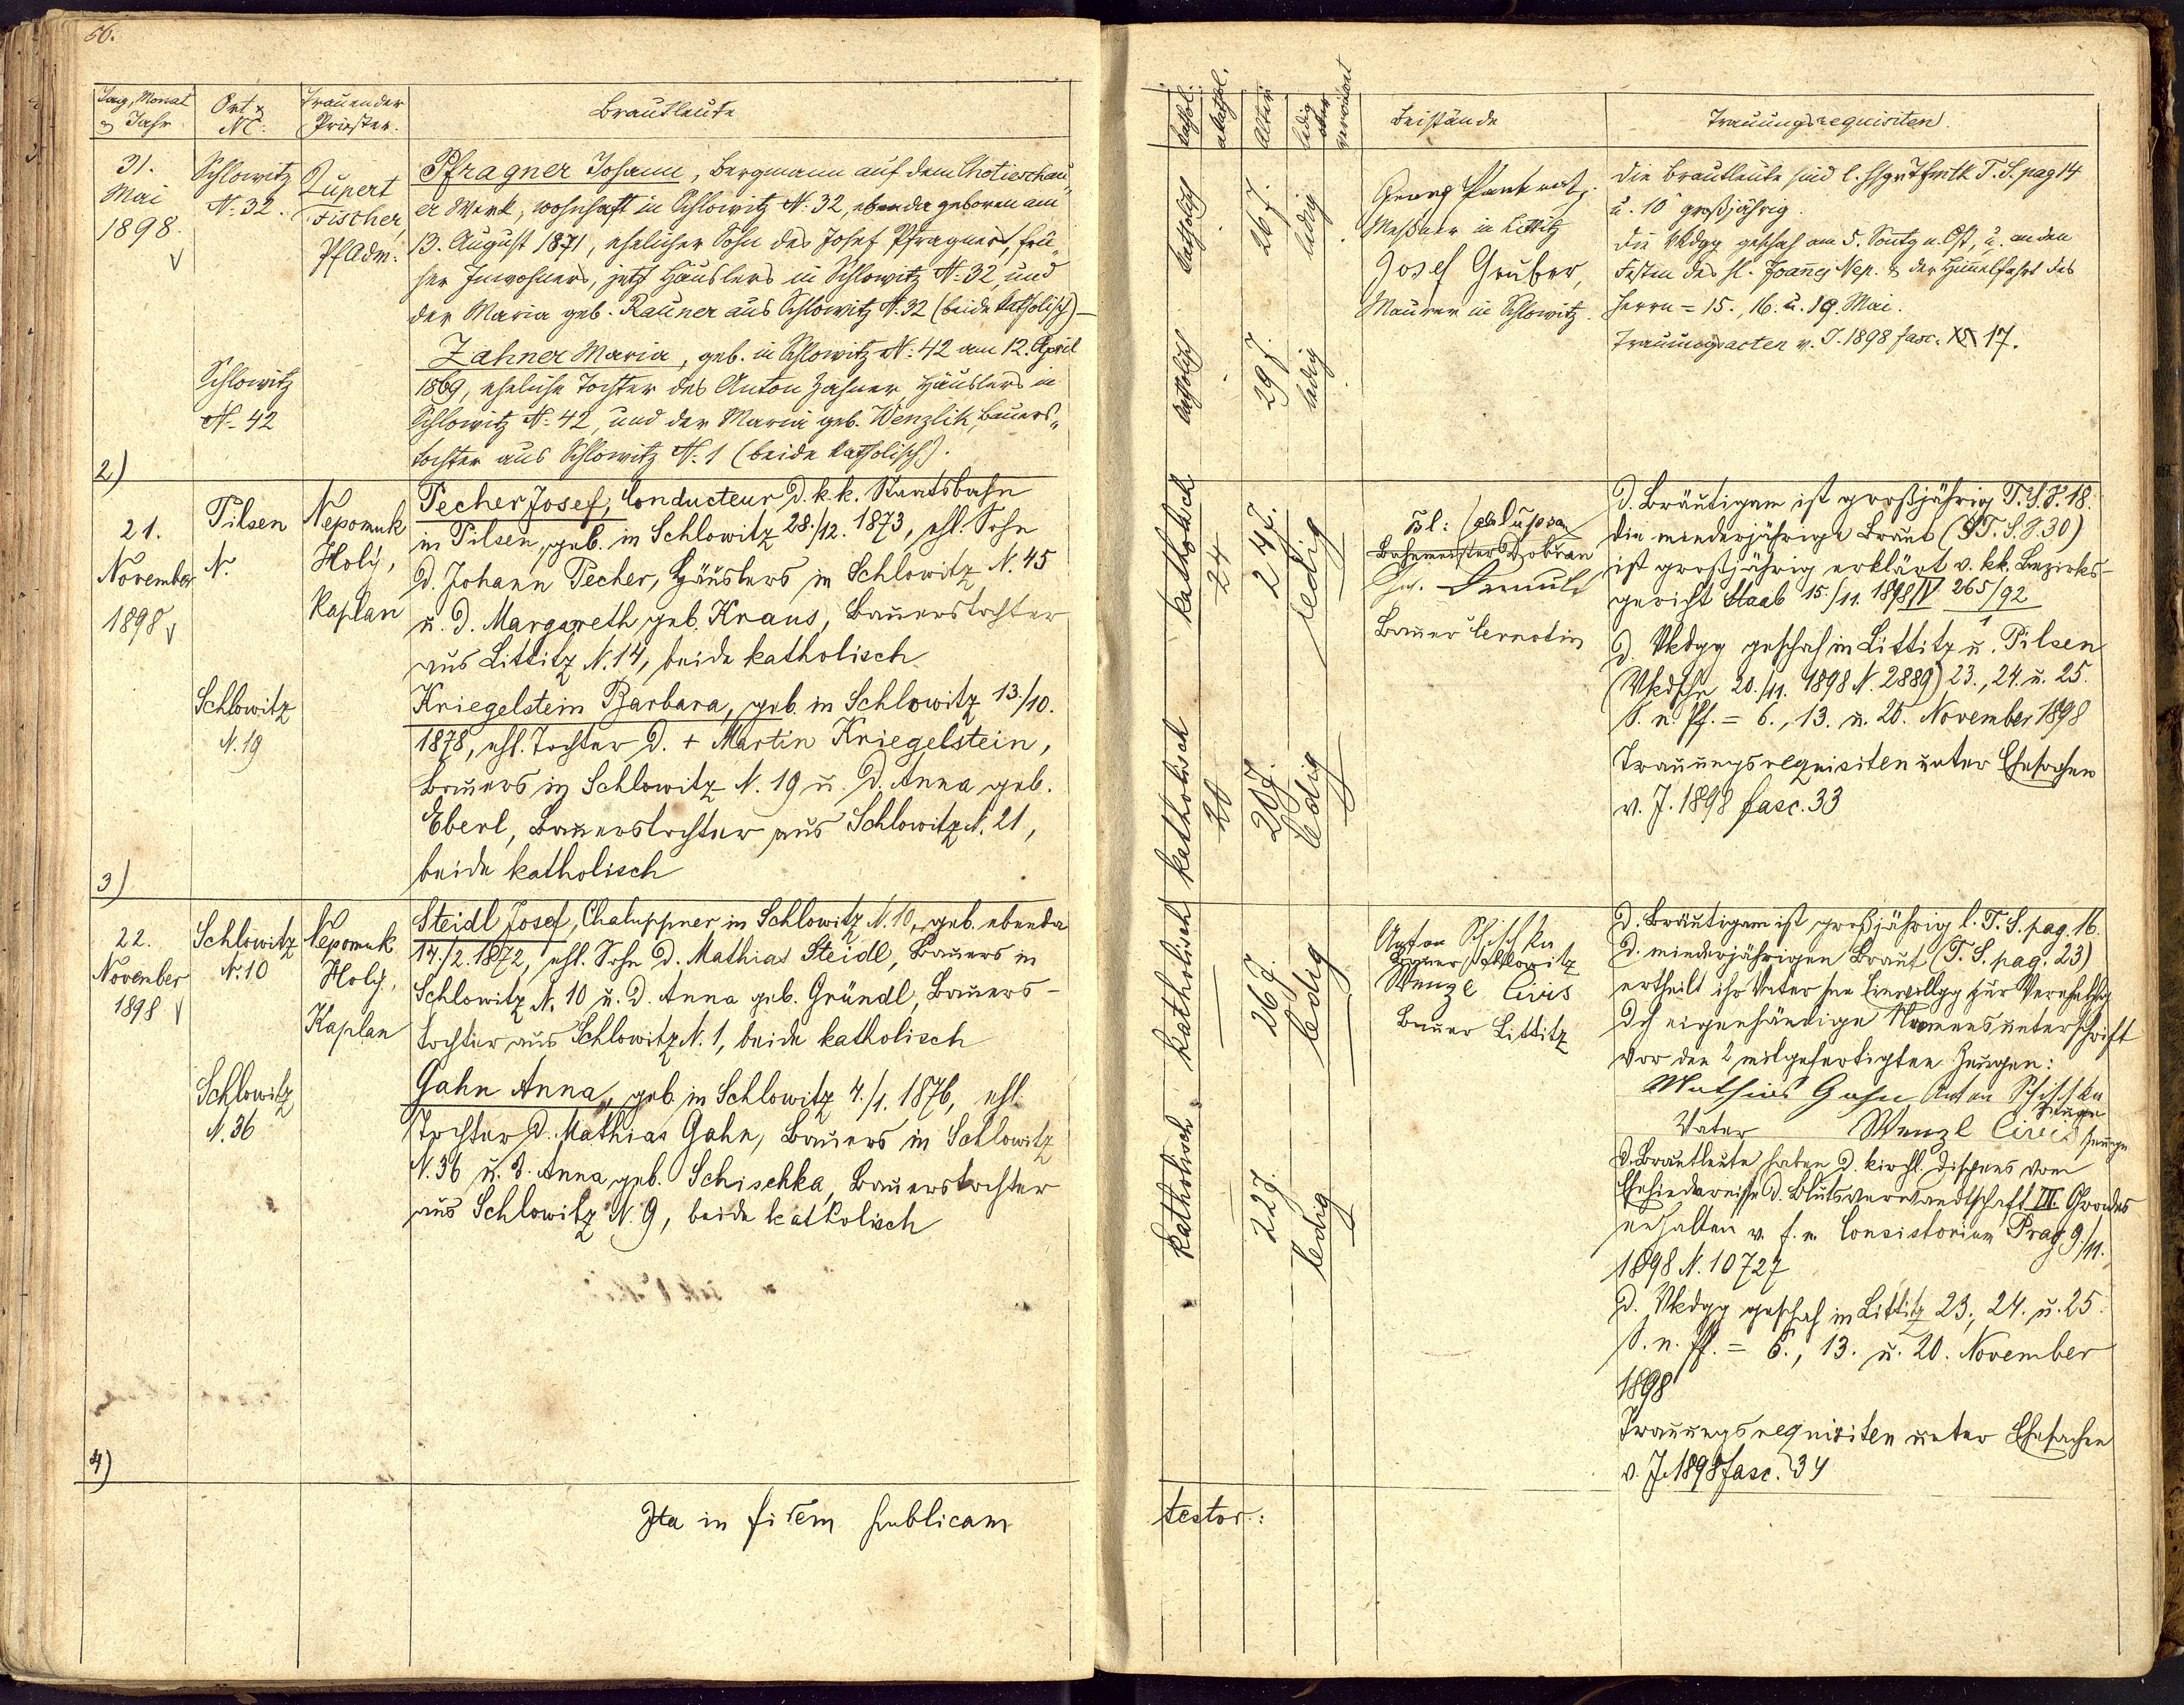 50.
Tag, Monat & Jahr
Ort & NC:
Trauender Priester.
Brautleute
kathol.
akathol.
Alter
ledig oder verwitwet
Beistände
Trauungsrequisiten.
31.
Mai
1898.
Schlowitz
N. 32.
Rupert
Fischer
PfAdm.
Pfragner Johann, Bergmann auf dem Chotieschau„
er Werk, wohnhaft in Schlowitz N. 32, ebenda geboren am
13. August 1871, ehelicher Sohn des Josef Pfragner, frü„
her Inwohners, jetzt Häuslers in Schlowitz N. 32, und
der Maria geb. Rauner aus Schlowitz N. 32 (beide katholisch) –
Schlowitz
N. 42
Zahner Maria, geb. in Schlowitz N. 42 am 12. April
1869, eheliche Tochter des Anton Zahner, Häuslers in
Schlowitz N. 42, und der Maria geb. Wenzlik, Bauers„
tochter aus Schlowitz N. 1 (beide katholisch).
katholisch
26 J.
ledig
katholisch
29 J.
ledig
Georg
Meßner in Littitz
Josef Gruber,
Maurer in Schlowitz.
Die Brautleute sind l. T. S. pag 14
u. 10 großjährig.
Die Vkdgg geschah am 5. Sontg n. Ost, u. an den
Festen des hl. Joannes Nep. & der Himmelfahrt des
Herrn = 15., 16. u. 19. Mai.
Trauungsacten v. J. 1898 fasc. 17.
2)
21.
November
1898
Pilsen
N.
Nepomuk
Holý,
Kaplan
Pecher Josef, Conducteur d. k. k. Staatsbahn
in Pilsen, geb. in Schlowitz 28./12. 1873, ehl. Sohn
d. Johann Pecher, Häuslers in Schlowitz N. 45
u. d. Margareth geb. Kraus, Bauerstochter
aus Littitz N. 14, beide katholisch
Schlowitz
N. 19
Kriegelstein Barbara, geb. in Schlowitz 13./10.
1878, ehl. Tochter d. + Martin Kriegelstein,
Bauers in Schlowitz N. 19 u. d. Anna geb.
Eberl, Bauerstochter aus Schlowitz N. 21,
beide katholisch
katholisch
24
24 J.
ledig
katholisch
20
20 J.
ledig
Bahnmeister Dobřan
Bauer Lernotin
D. Bräutigam ist großjährig T. S. S. 18.
Die minderjährige Braut (T. S. S. 30)
ist großjährig erklärt v. kk. Bezirks-
gericht Staab 15./11. 1898 IV 265/92
1
D. Vkdgg geschah in Littitz u. Pilsen
(Vkdsche 20./11. 1898 N. 2889) 23., 24. u. 25.
S. n. Pf. = 6., 13. u. 20. November 1898
Trauungsrequisiten unter Ehesachen
v. J. 1898 fasc. 33
3)
22.
November
1898
Schlowitz
N. 10
Nepomuk
Holý,
Kaplan
Steidl Josef, Chaluppner in Schlowitz N. 10, geb. ebenda
14./2. 1872, ehl. Sohn d. Mathias Steidl, Bauers in
Schlowitz N. 10 u. d. Anna geb. Gründl, Bauers-
tochter aus Schlowitz N. 1, beide katholisch
Schlowitz
N. 36
Gahn Anna, geb. in Schlowitz 4./1. 1876, ehl.
Tochter d. Mathias Gahn, Bauers in Schlowitz
N. 36 u. d. Anna geb. Schischka, Bauerstochter
aus Schlowitz N. 9, beide katholisch
katholisch
26 J.
ledig
katholisch
22 J.
ledig
Anton Schischka
Bauer Schlowitz
Wenzl Civis
Bauer Littitz
D. Bräutigam ist großjährig l. T. S. pag. 16.
D. minderjährigen Braut (T. S. pag. 23)
ertheilt ihr Vater seine Einwillgg zur Verehelchg
dch eigenhändige Namensunterschrift
vor den 2 mitgefertigten Zeugen:
Mathias Gahn Anton Schischka
Zeuge
Vater Wenzl Civis Zeuge
D. Brautleute haben d. kirchl. Dispens vom
Ehehindernisse d. Blutsverwandtschaft III. Grades
erhalten v. f. e. Consistorium Prag 9./11.
1898 N. 10727
D. Vkdgg geschah in Littitz 23., 24. u. 25.
S. n. Pf. = 6., 13. u. 20. November
1898
Trauungsrequisiten unter Ehesachen
v. J. 1898 fasc. 34
4)
Ita in fidem publicam
testor: